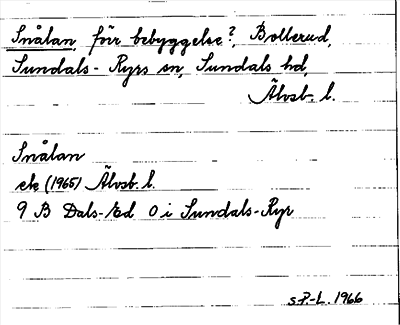 Snålan, förr bebyggelse?, Bollerud,
Sundals-Ryrs sn, Sundals hd,
Älvsb. l.
Snålan
ek (1965) Älvsb. l.
9 B Dals-Ed O i Sundals-Ryr
S.P-L. 1966